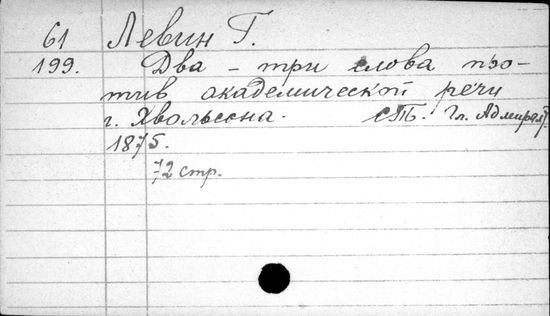 61 Левин Г.
199. Два - три слова про-
тив академической речи
г. Хвольсона. СПБ. Гл. Адмирал.
1875.
72 стр.